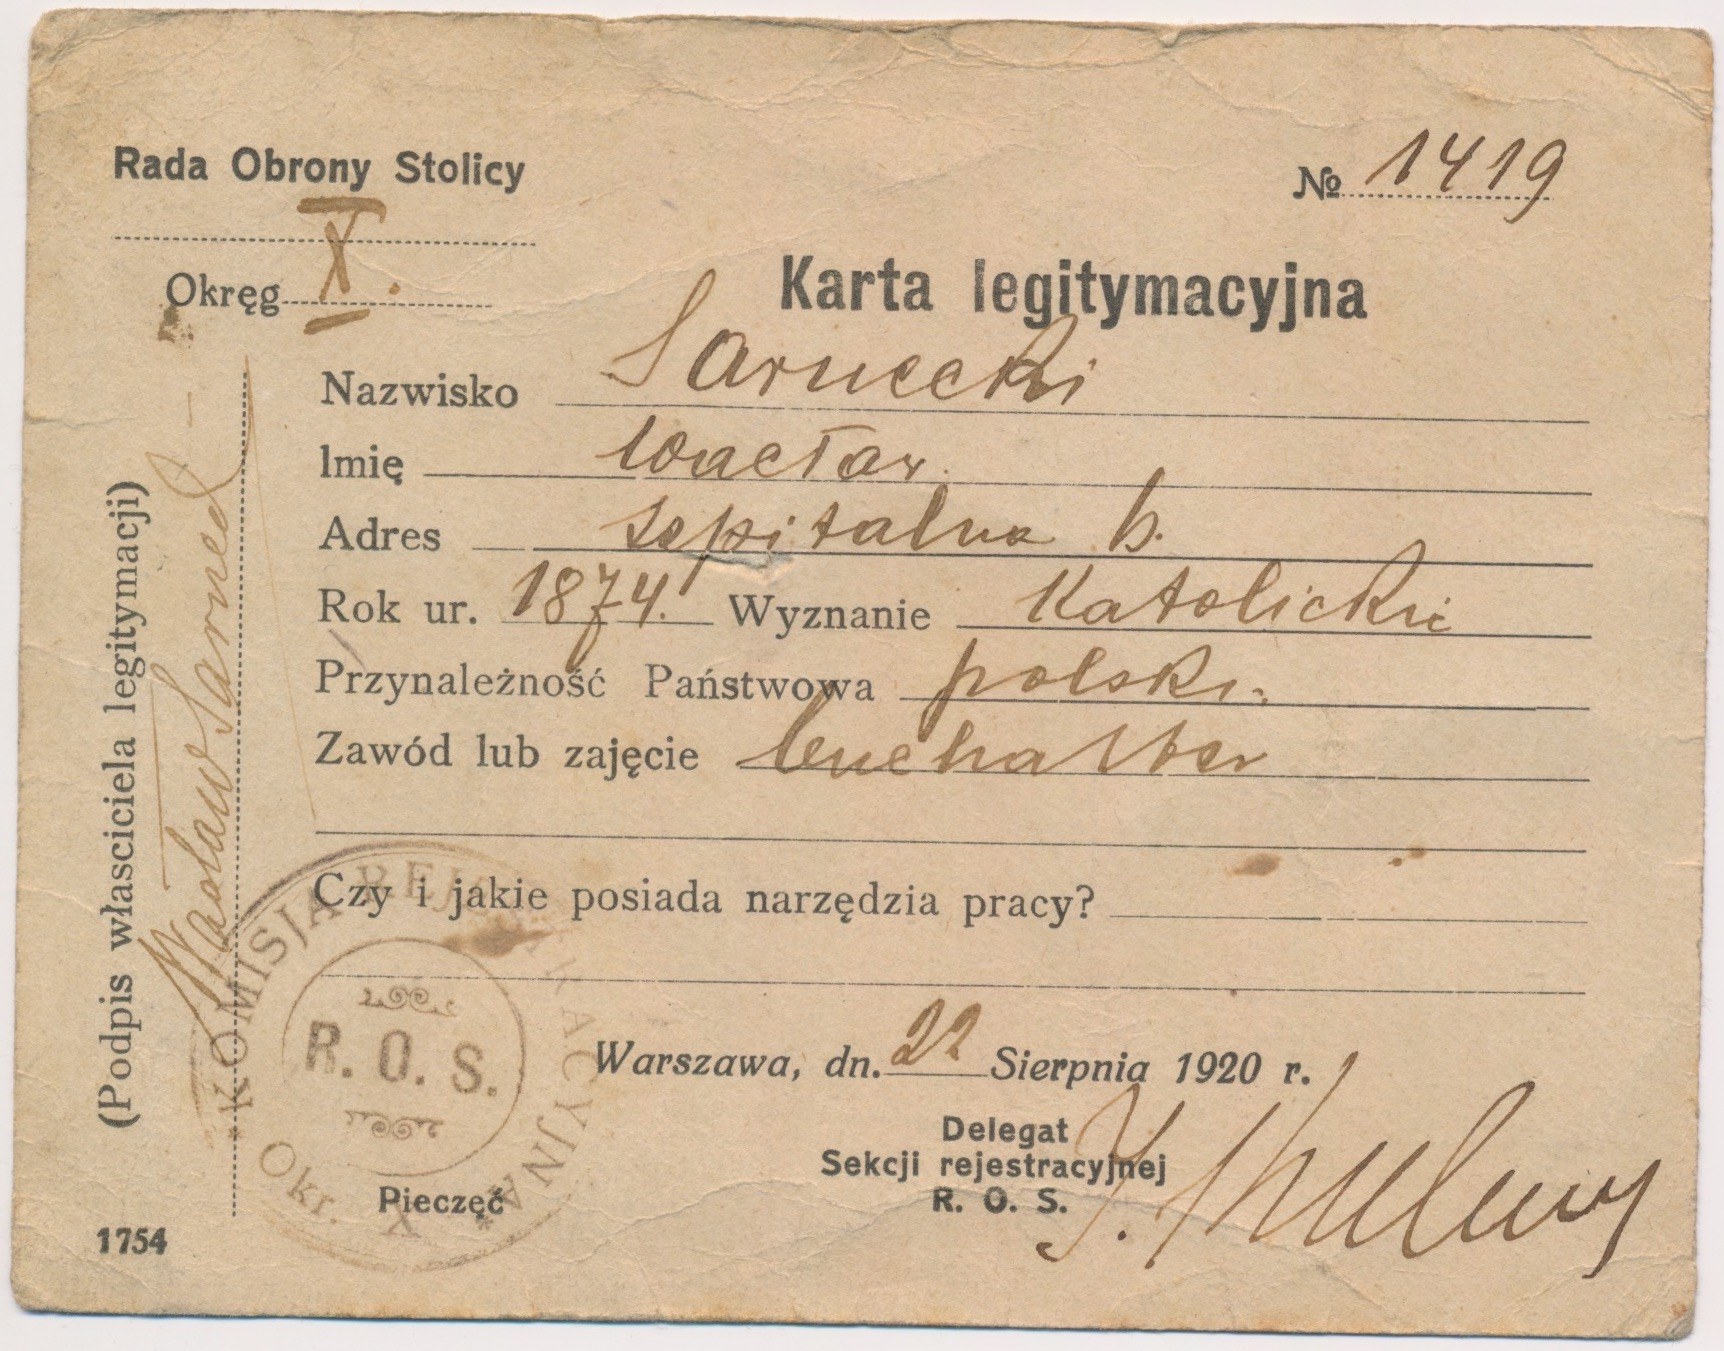 Rada Obrony Stolicy
№ 1419
Okręg X.
Karta legitymacyjna
Nazwisko Sarnecki
Imię Wacław
Adres Szpitalna 6.
Rok ur. 1874. Wyznanie Katolickie
Przynależność Państwowa polska.
Zawód lub zajęcie buchalter
Czy i jakie posiada narzędzia pracy?
Warszawa, dn. 22 Sierpnia 1920 r.
Delegat
Sekcji rejestracyjnej
R. O. S.
Pieczęć
1754
(Podpis własciciela legitymacji)
Wacław Sarnecki
KOMISJA REJESTRACYJNA
R. O. S.
Okr. X